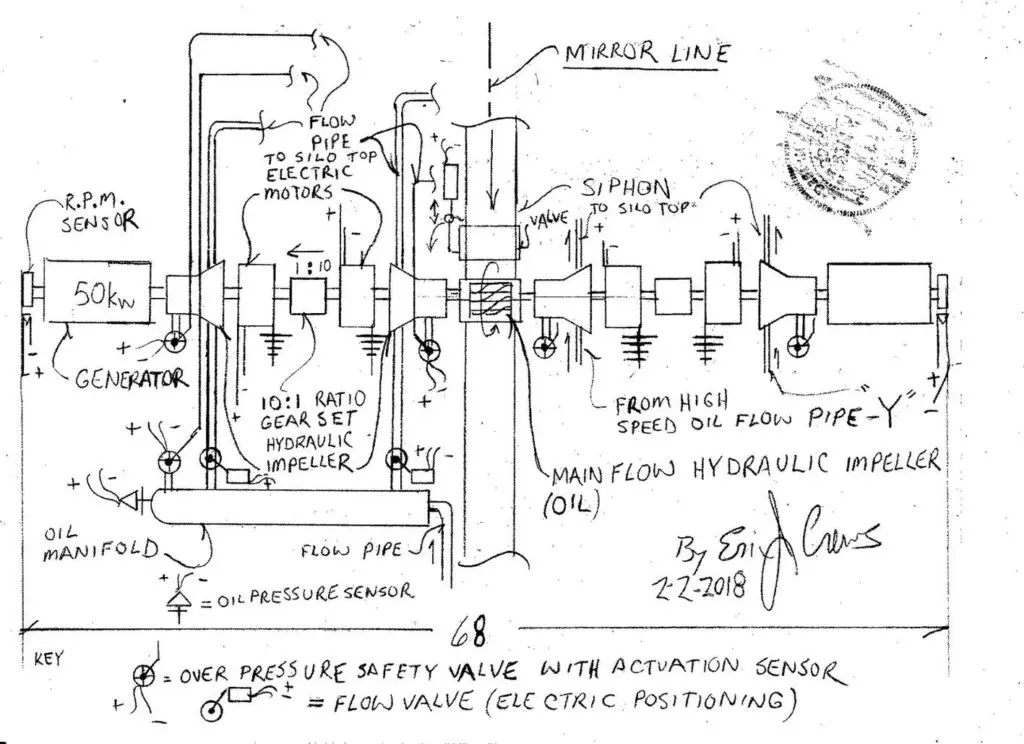 MIRROR LINE
FLOW
PIPE
TO SILO TOP
ELECTRIC
MOTORS
R.P.M.
SENSOR
SIPHON
TO SILO TOP
VALVE
1:10
50KW
GENERATOR
10:1 RATIO
GEAR SET
HYDRAULIC
IMPELLER
FROM HIGH
SPEED OIL FLOW PIPE-"Y"
MAIN FLOW HYDRAULIC IMPELLER
(OIL)
OIL
MANIFOLD
FLOW PIPE
By Eric J Crews
2-2-2018
= OIL PRESSURE SENSOR
68
KEY
= OVER PRESSURE SAFETY VALVE WITH ACTUATION SENSOR
= FLOW VALVE (ELECTRIC POSITIONING)